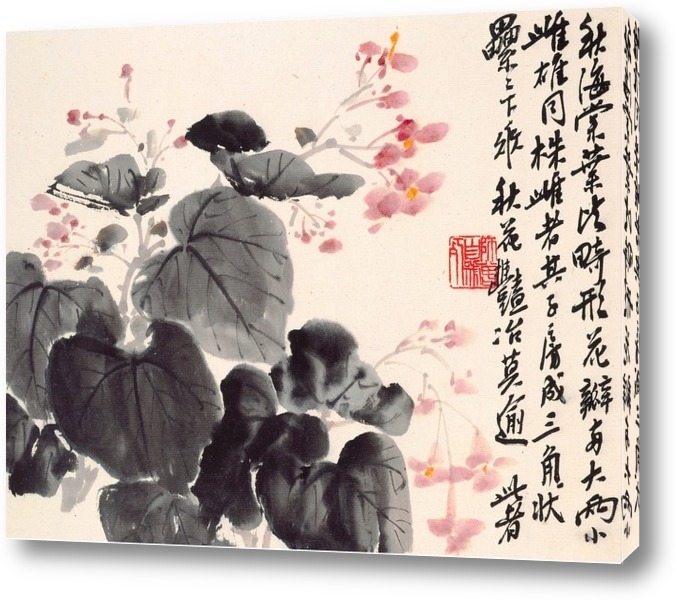 秋海棠葉畸形花瓣大兩小
雌雄同株雌者其子房成三角狀
纍〻下垂秋花豔冶莫逾此者